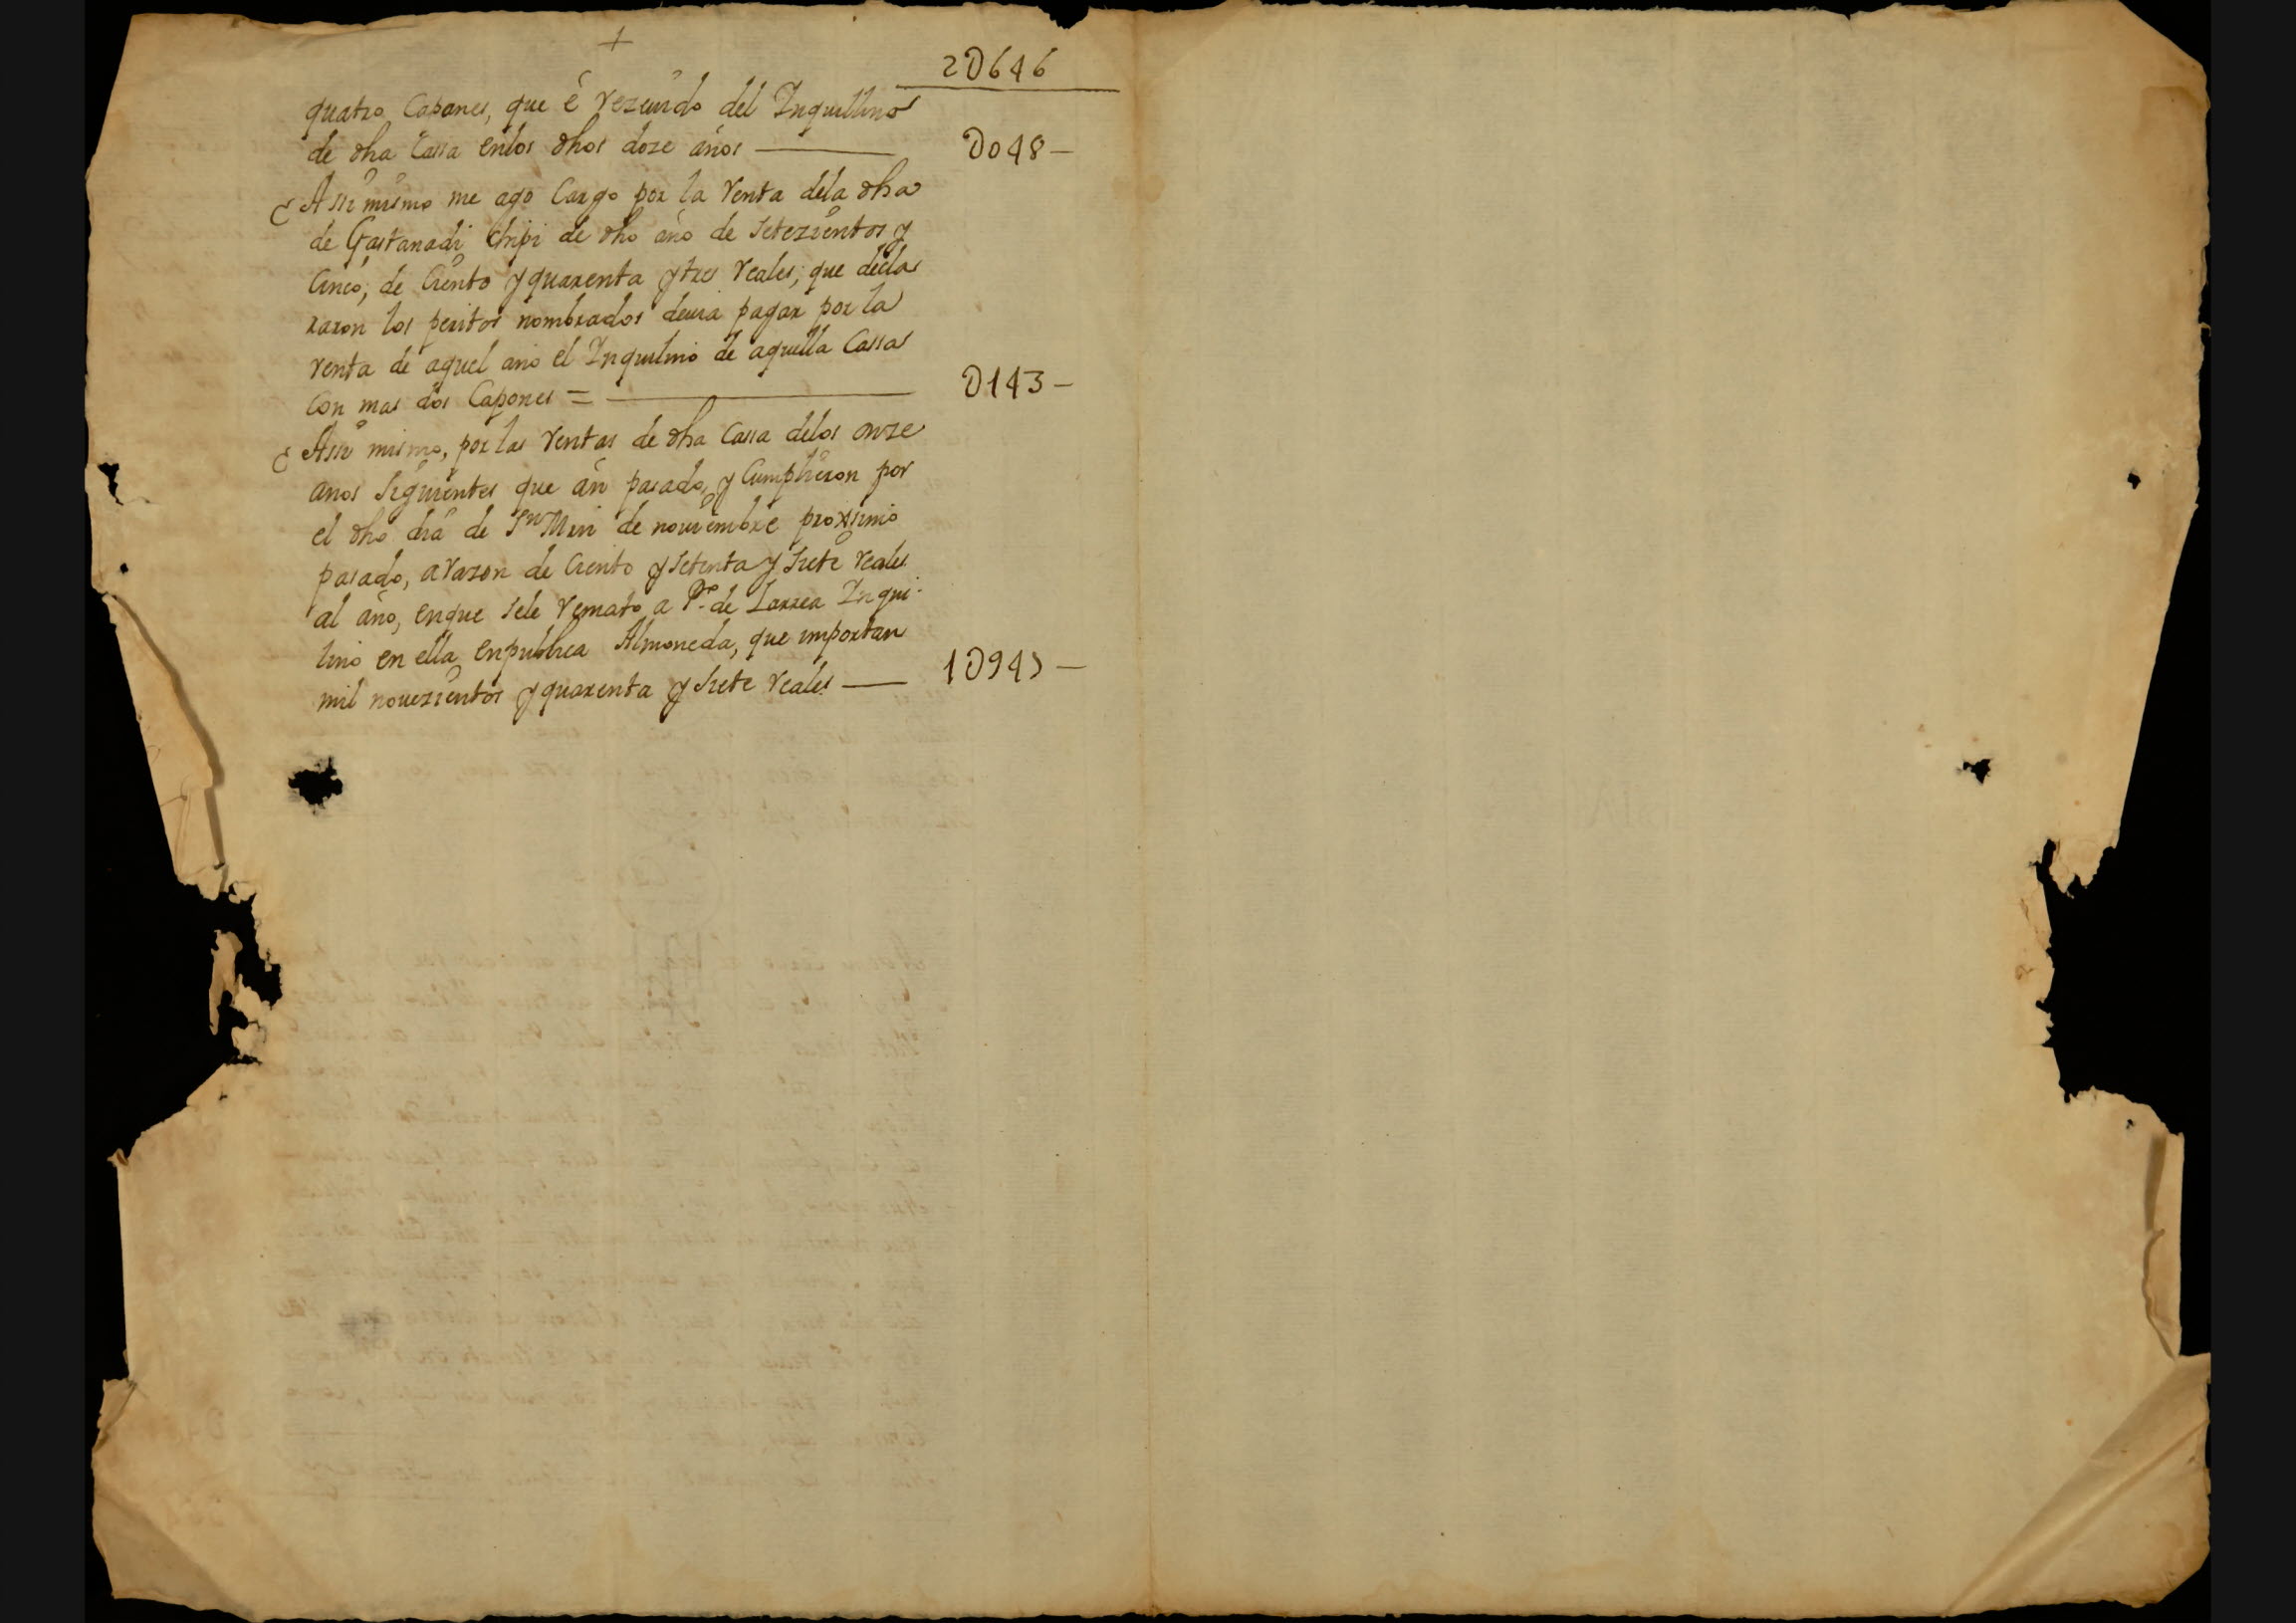 +
2D646
quatro Capones, que é rezeuido del Inquillino
de dha Cassa enlos dhos doze años — D048—
Assi mismo me ago Cargo por la renta dela dha
de Gastanadi Chipi de dho año de Setezientos y
Cinco, de Ciento y quarenta y tres reales, que decla
raron los peritos nombrados deuia pagar por la
renta de aquel año el Inquilino de aquella Cassa
Con mas dos Capones = — D143—
Assi mismo, por las rentas de dha Cassa delos onze
anos siguientes que án pasado, y Cumplieron por
el dho dia de Sn Mrn de nouiembre proximo
pasado, a razon de Ciento y Setenta y Siete reales
al año, enque sele remato a Po. de Larrea Inqui-
lino en ella en publica Almoneda, que importan
mil nouezientos y quarenta y Siete reales — 1D947—